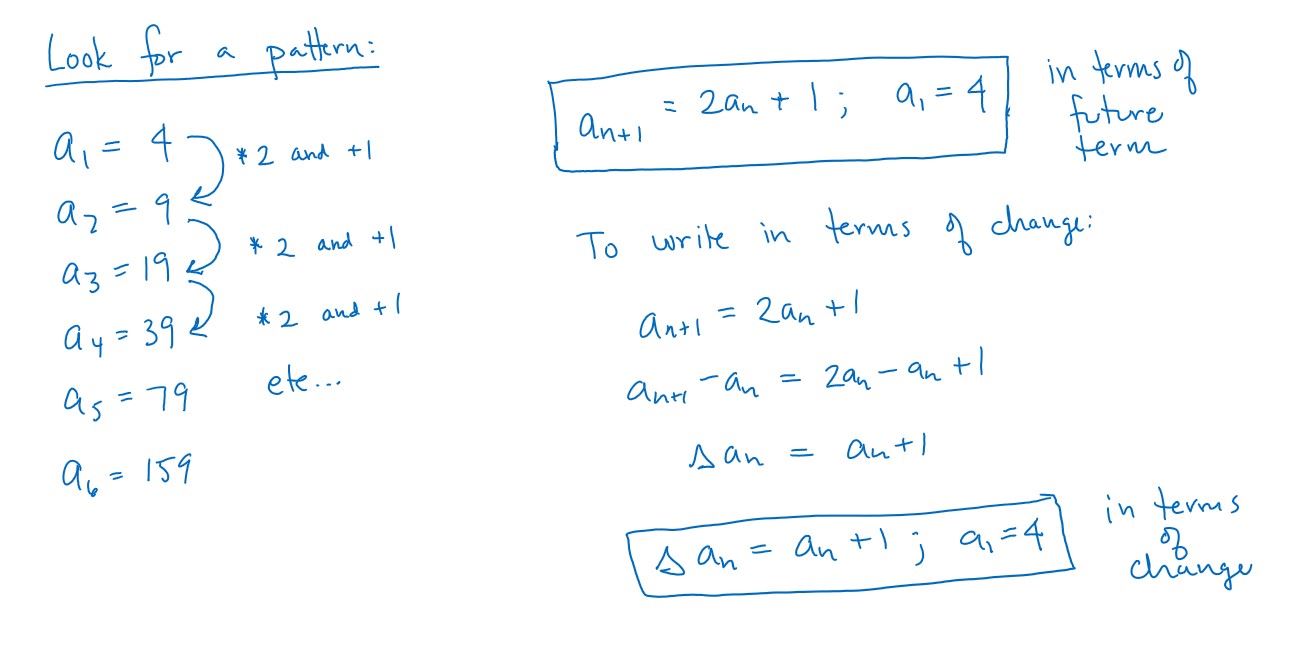 Look for a pattern:
a₁ = 4
* 2 and +1
a₂ = 9
* 2 and +1
a₃ = 19
* 2 and +1
a₄ = 39
a₅ = 79
etc...
a₆ = 159
aₙ₊₁ = 2aₙ + 1 ; a₁ = 4
in terms of
future
term
To write in terms of change:
aₙ₊₁ = 2aₙ + 1
aₙ₊₁ - aₙ = 2aₙ - aₙ + 1
Δ aₙ = aₙ + 1
Δ aₙ = aₙ + 1 ; a₁ = 4
in terms
of
change